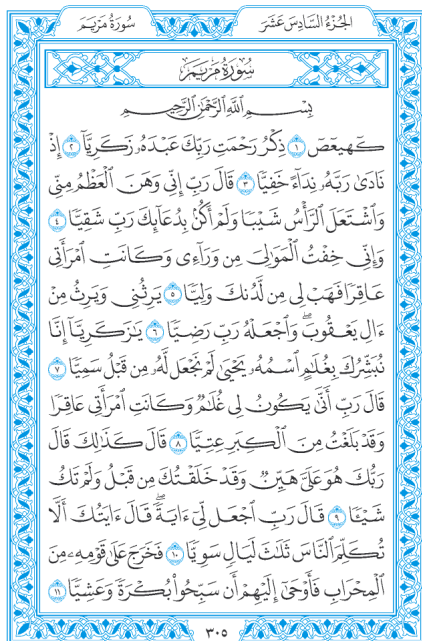 الجُزْءُ السَّادِسَ عَشَرَ
سُورَةُ مَرْيَمَ
سُورَةُ مَرْيَمَ
بِسْمِ اللَّهِ الرَّحْمَٰنِ الرَّحِيمِ
كٓهيعٓصٓ ١ ذِكْرُ رَحْمَتِ رَبِّكَ عَبْدَهُۥ زَكَرِيَّآ ٢ إِذْ
نَادَىٰ رَبَّهُۥ نِدَآءً خَفِيًّا ٣ قَالَ رَبِّ إِنِّى وَهَنَ ٱلْعَظْمُ مِنِّى
وَٱشْتَعَلَ ٱلرَّأْسُ شَيْبًا وَلَمْ أَكُنۢ بِدُعَآئِكَ رَبِّ شَقِيًّا ٤
وَإِنِّى خِفْتُ ٱلْمَوَٰلِىَ مِن وَرَآءِى وَكَانَتِ ٱمْرَأَتِى
عَاقِرًا فَهَبْ لِى مِن لَّدُنكَ وَلِيًّا ٥ يَرِثُنِى وَيَرِثُ مِنْ
ءَالِ يَعْقُوبَ ۖ وَٱجْعَلْهُ رَبِّ رَضِيًّا ٦ يَٰزَكَرِيَّآ إِنَّا
نُبَشِّرُكَ بِغُلَٰمٍ ٱسْمُهُۥ يَحْيَىٰ لَمْ نَجْعَل لَّهُۥ مِن قَبْلُ سَمِيًّا ٧
قَالَ رَبِّ أَنَّىٰ يَكُونُ لِى غُلَٰمٌ وَكَانَتِ ٱمْرَأَتِى عَاقِرًا
وَقَدْ بَلَغْتُ مِنَ ٱلْكِبَرِ عِتِيًّا ٨ قَالَ كَذَٰلِكَ قَالَ
رَبُّكَ هُوَ عَلَىَّ هَيِّنٌ وَقَدْ خَلَقْتُكَ مِن قَبْلُ وَلَمْ تَكُ
شَيْـًٔا ٩ قَالَ رَبِّ ٱجْعَل لِّىٓ ءَايَةً ۚ قَالَ ءَايَتُكَ أَلَّا
تُكَلِّمَ ٱلنَّاسَ ثَلَٰثَ لَيَالٍ سَوِيًّا ١٠ فَخَرَجَ عَلَىٰ قَوْمِهِۦ مِنَ
ٱلْمِحْرَابِ فَأَوْحَىٰٓ إِلَيْهِمْ أَن سَبِّحُوا۟ بُكْرَةً وَعَشِيًّا ١١
٣٠٥